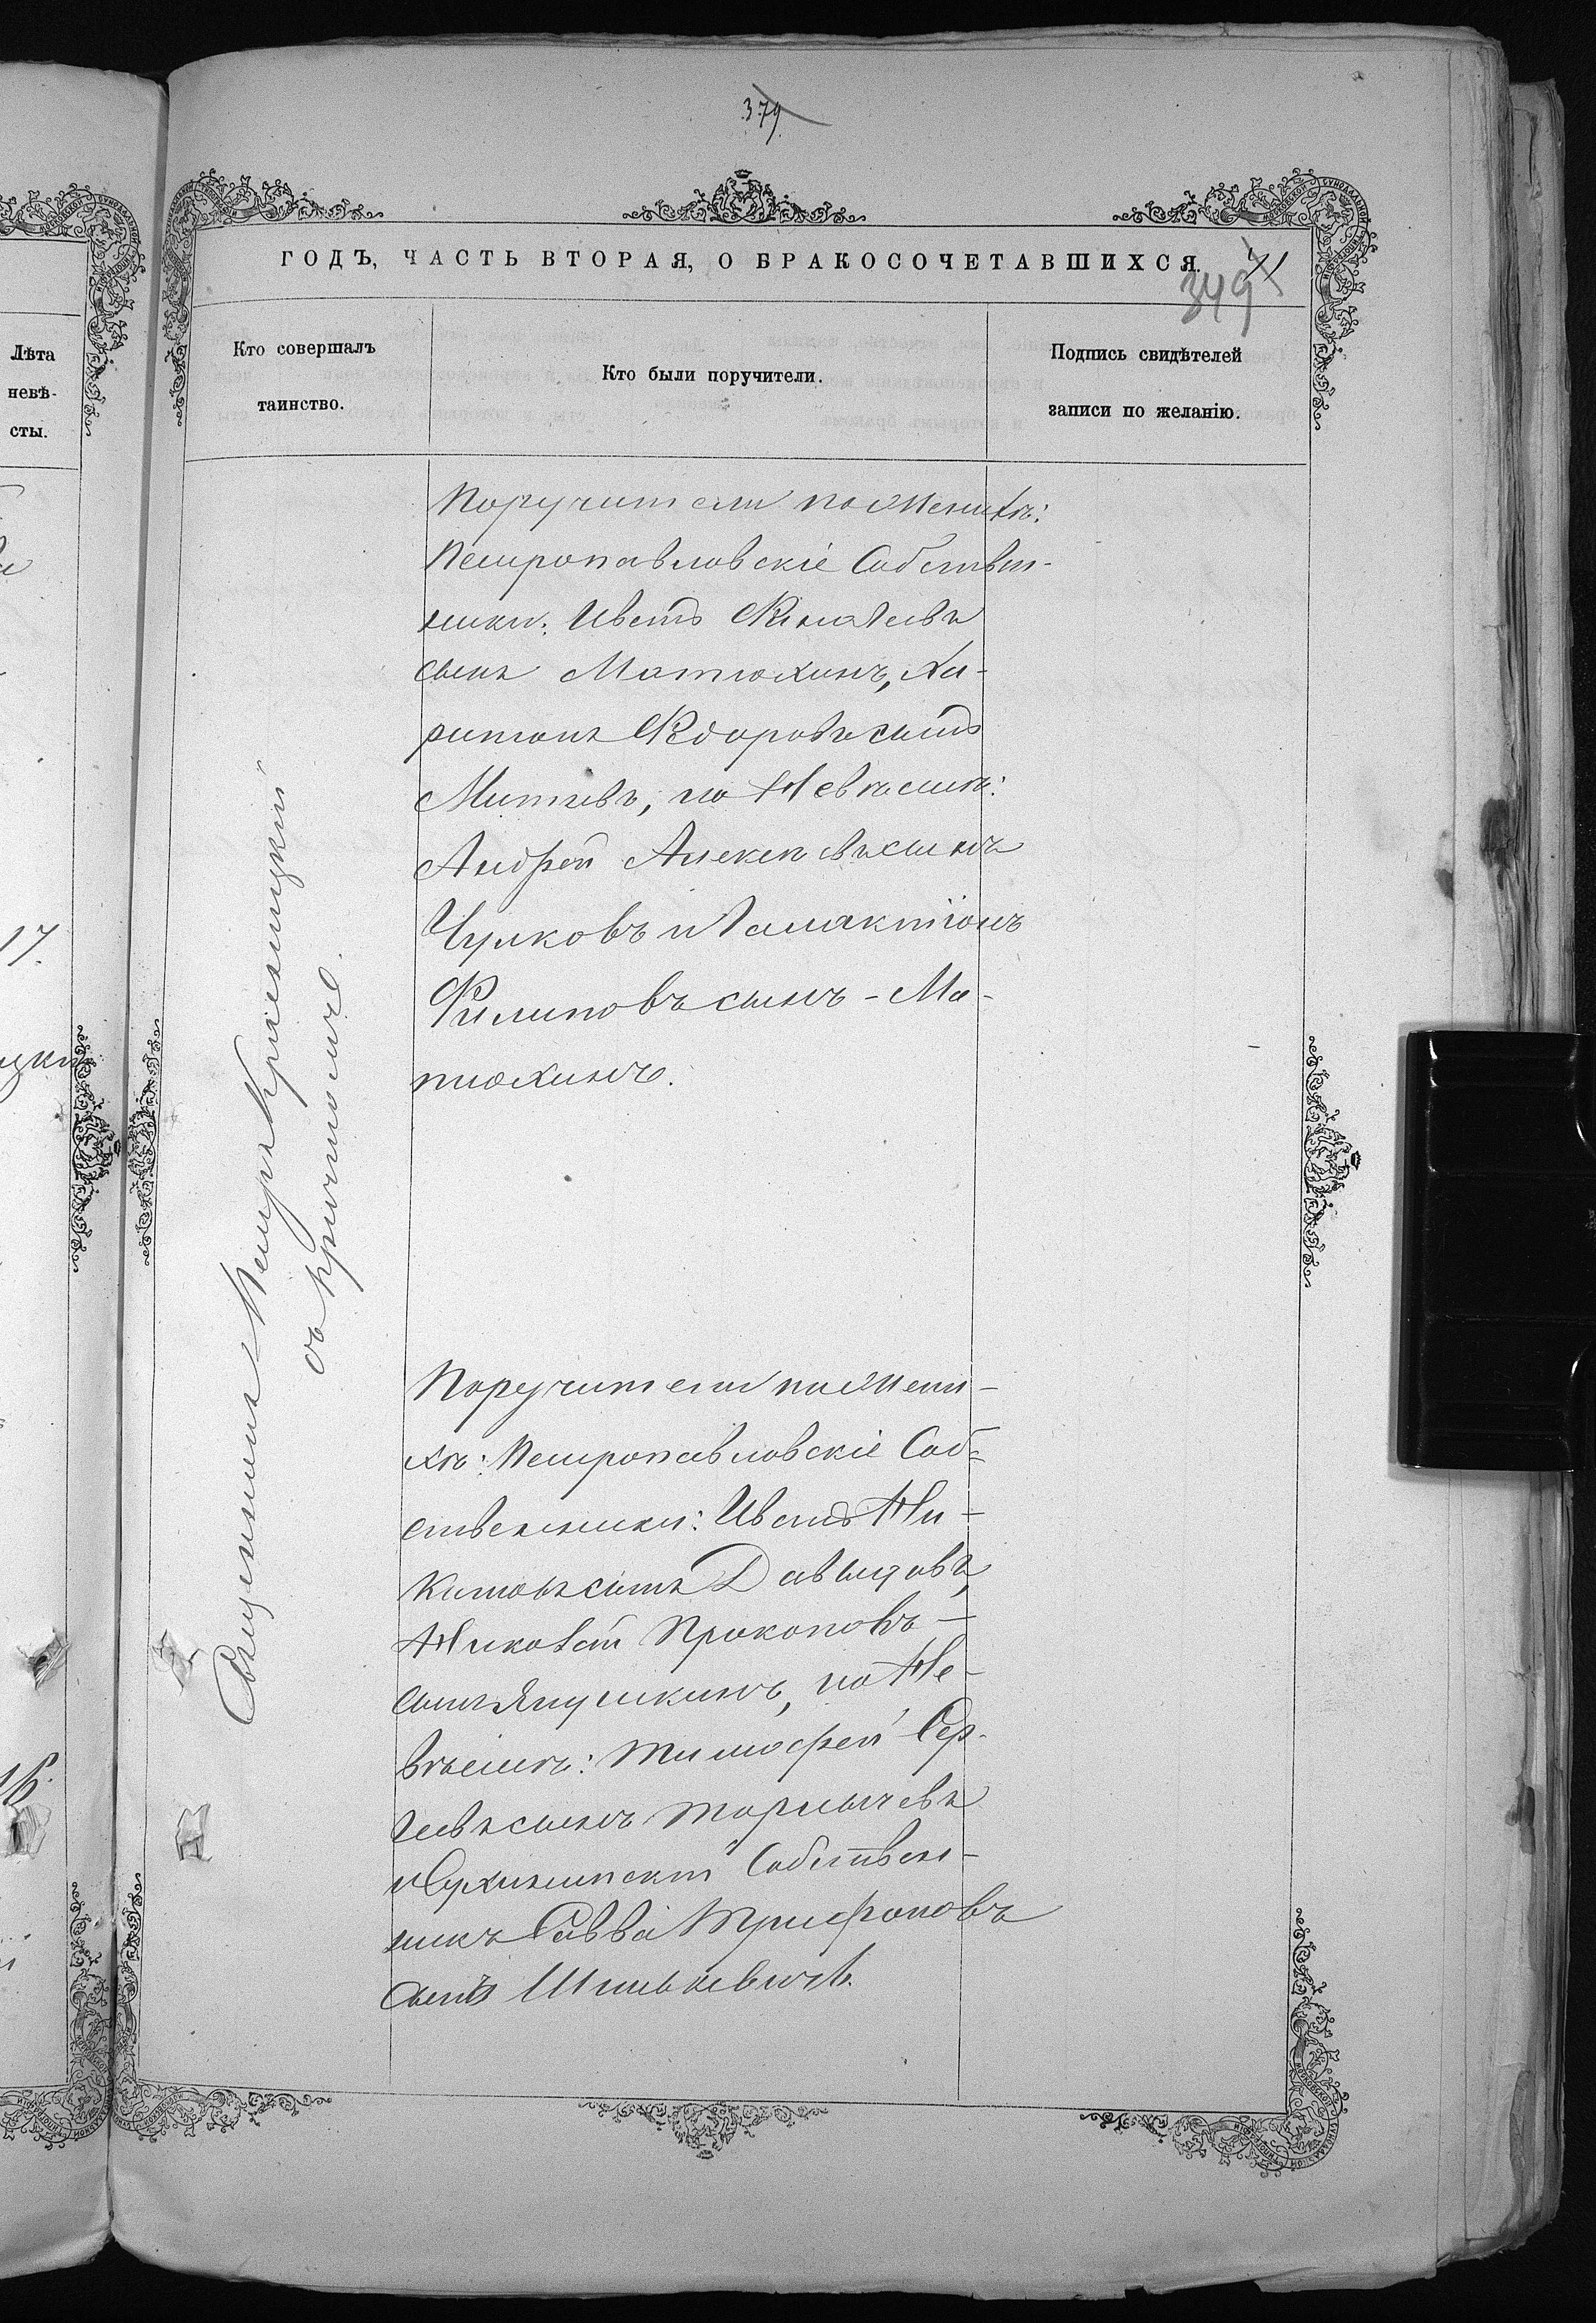 379
ГОДЪ, ЧАСТЬ ВТОРАЯ, О БРАКОСОЧЕТАВШИХСЯ.
349
Лѣта
невѣ-
сты.
17.
Кто совершалъ
таинство.
Кто были поручители.
Подпись свидѣтелей
записи по желанію.
Священникъ Петръ Красницкій
съ причтомъ.
Поручители по Женихѣ:
Петропавловскіе Собствен-
ники: Иванъ
сынъ Матюхинъ, Ха-
ритонъ Ѳедоровъ сынъ
Митевъ, по Невѣстѣ:
Андрей Алексѣевъ сынъ
Чулковъ и Галактіонъ
Филиповъ сынъ - Ма-
тюхинъ.
Поручители по Жени-
хѣ: Петропавловскіе Соб-
ственники: Иванъ Ни-
китовъ сынъ Давыдовъ,
Николай Прокоповъ
сынъ Япушкинъ, по Не-
вѣстѣ: Тимофей Сер-
геевъ сынъ Тормычевъ
и Собствен-
никъ Савва Трифоновъ
сынъ